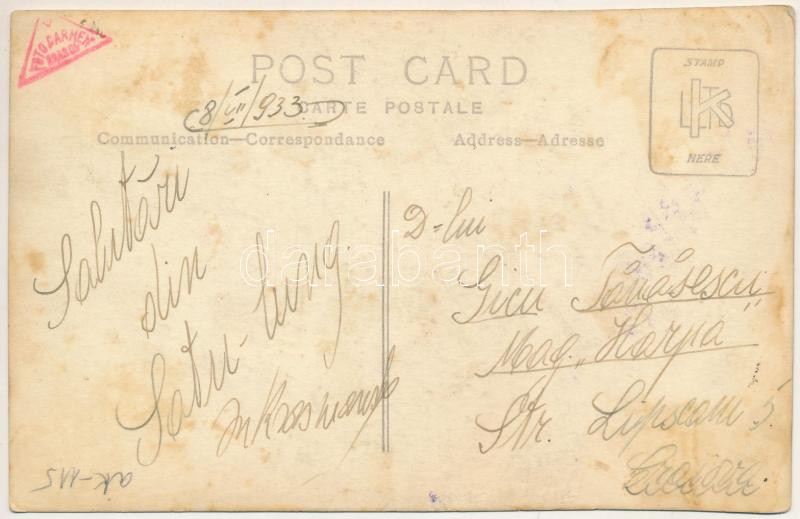 FOTO CARMEN
BRASOV
POST CARD
CARTE POSTALE
8/VII/933
Communication—Correspondance
Address—Adresse
STAMP
HERE
Salutări
din
Satu-Lung.
D-lui
Gicu Tănăsescu
Mag. „Harpa"
Str. Lipscani 5
Craiova
ak-115
darabanth